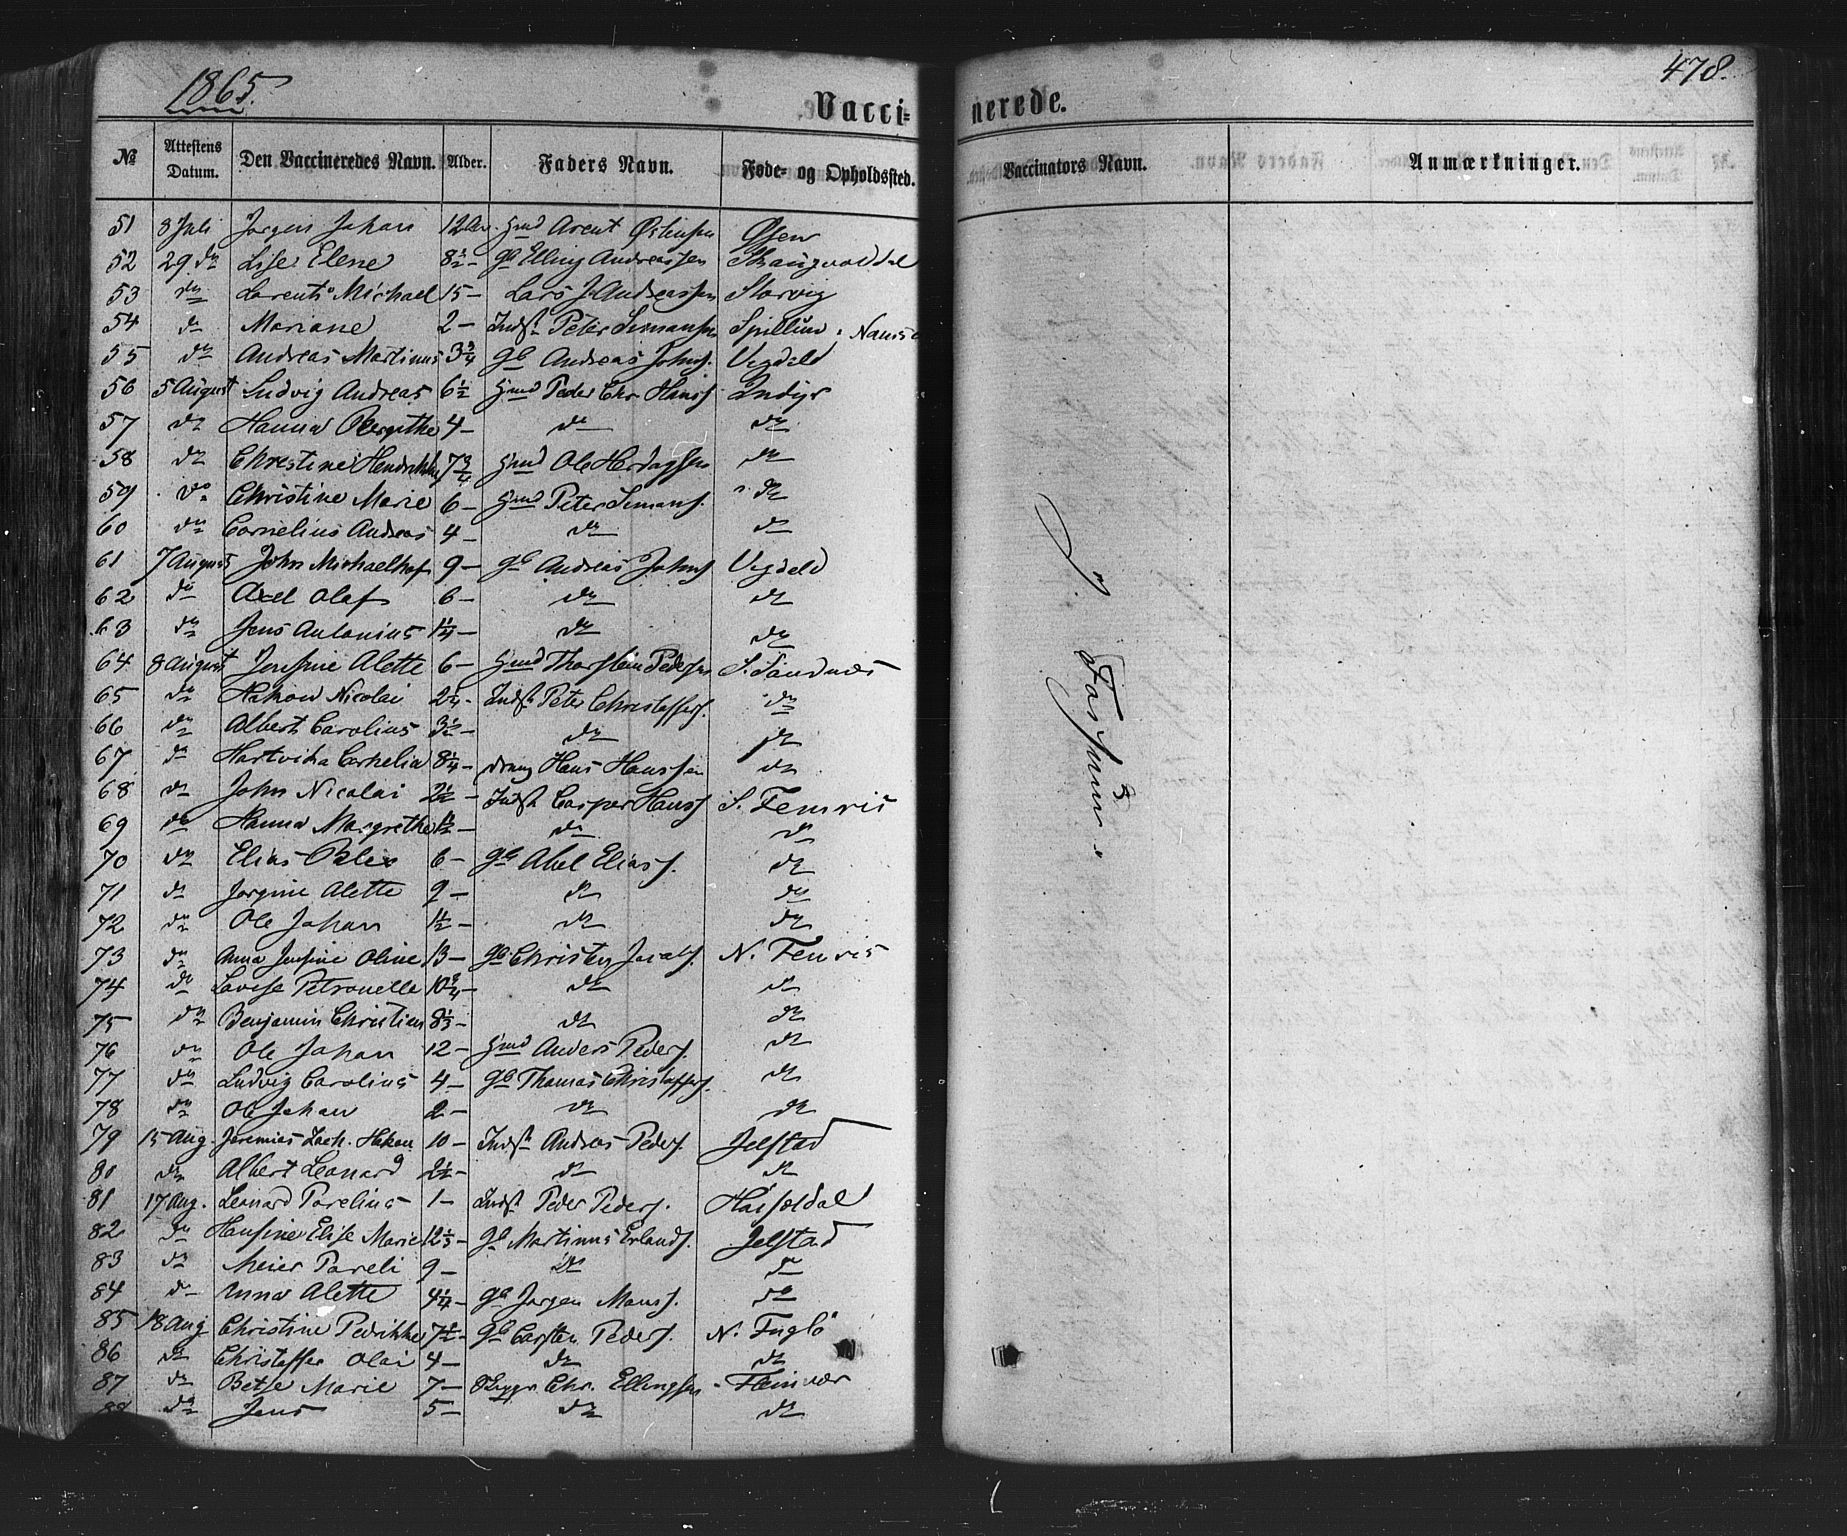 1865.
478.
Vacci=
nerede.
№ Attestens Datum. Den Vaccineredes Navn. Alder. Faders Navn. Føde- og Opholdssted.
Vaccinators Navn. Anmærkninger.
51 8 Juli Jørgen Johan 12 Gmd Arent Østensen
52 29 do Lise Elene 8½ – Gb Elling Andreassen
53 do Larents Michael 15 – Lars J. Andreassen Storvig
54 do Mariane 2 – Indst Peter Simonsen Spillum
55 do Andreas Martinus 3¾ Gb Andreas Johns. Vegdeld
56 5 August Ludvig Andreas 6½ Gmd Peder Chr Hanss. Indyr
57 do Hanna Bergithe 4 – do do
58 do Christine Hendrikke 7¾ Gmd Ole Herdagssen do
59 do Christine Marie 6 – Gmd Peter Simons. do
60 do Cornelius Andreas 4 – do do
61 7 August John Michael 9 – Gb Andreas Johns. Vegdeld
62 do Axel Olaf 6 – do do
63 do Jens Antonius 1¼ – do do
64 8 August Jensine Alette 6 – Gmd Thorstein Pedersen S. Sandnæs
65 do Hakon Nicolai 2¼ – Indst Peter Christoffers. do
66 do Albert Carolius 3½ – do do
67 do Hartvika Cornelia 8¼ – Hans Hanssen do
68 do John Nicolai 2½ – Indst Casper Hanss. S. Femris
69 do Hanna Margrethe 1½ – do do
70 do Elias 6 – Gb Abel Eliass. do
71 do Jørgine Alette 9 – do do
72 do Ole Johan 1½ – do do
73 do Anna Jensine Oline 13 – Gb Christen Jacobs. N. Femris
74 do Lovise Petronelle 10¾ – do do
75 do Benjamin Christian 8⅓ – do do
76 do Ole Johan 12 – Gmd Anders Peders. do
77 do Ludvig Carolius 4 – Gb Thomas Christoffers. do
78 do Ole Johan 2 – do do
79 15 Aug. Jeremias Zach. Hakon 10 – Indst Andreas Peders. Jelstad
80 do Albert Leonard 2½ – do do
81 17 Aug. Leonard Parelius 1 – Indst Peder Peders.
82 do Hansine Elise Marie 12⅓ – Gb Martinus Erlands. Jelstad
83 do Meier Pareli 9 – do do
84 do Anna Alette 4¼ – Gb Jørgen Monss. do
85 18 Aug Christine Pedrikke Gb Carsten Peders. N. Fuglø
86 do Christoffer Olai 4 – do do
87 do Betse Marie 7 – Chr. Ellingsen Fleinvær
88 do Jens 5 – do do